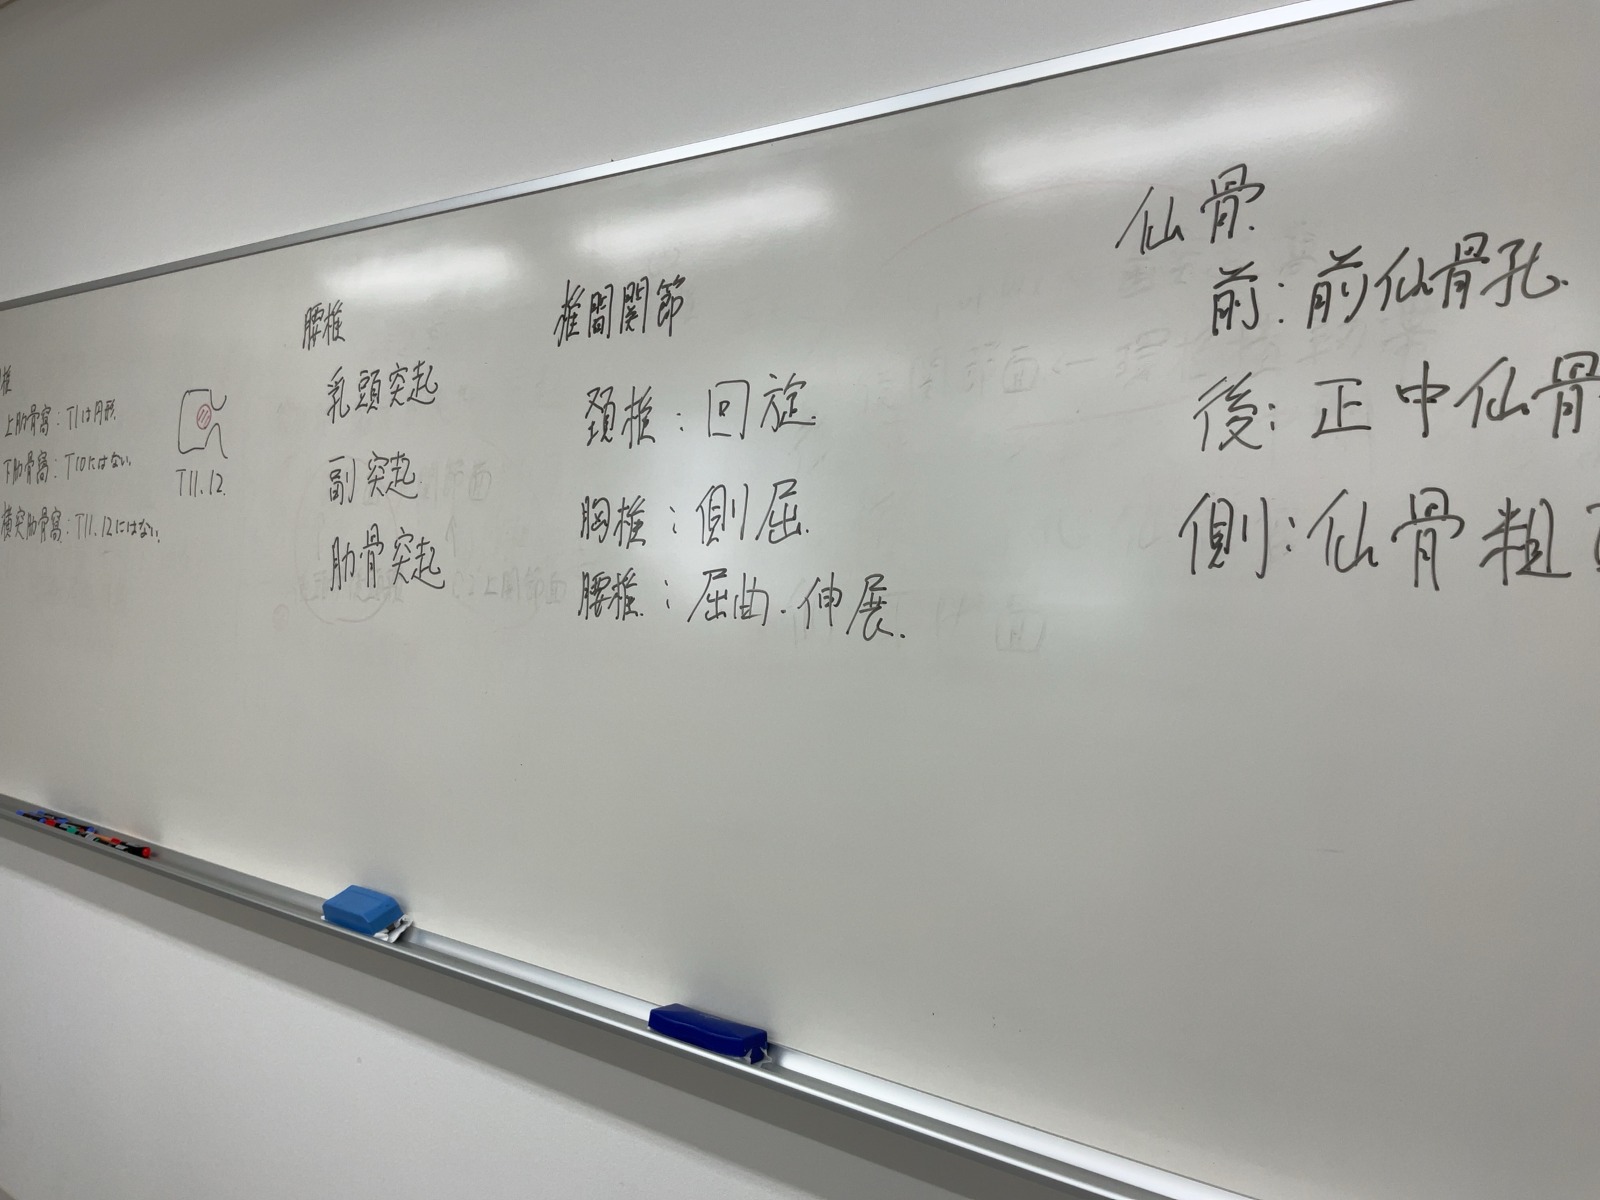 椎
上肋骨窩：T1は円形.
下肋骨窩：T10にはない.
横突肋骨窩：T11.12にはない.
T11.12.
腰椎
乳頭突起
副突起
肋骨突起
椎間関節
頚椎：回旋.
胸椎：側屈.
腰椎：屈曲.伸展.
仙骨.
前：前仙骨孔.
後：正中仙骨
側：仙骨粗